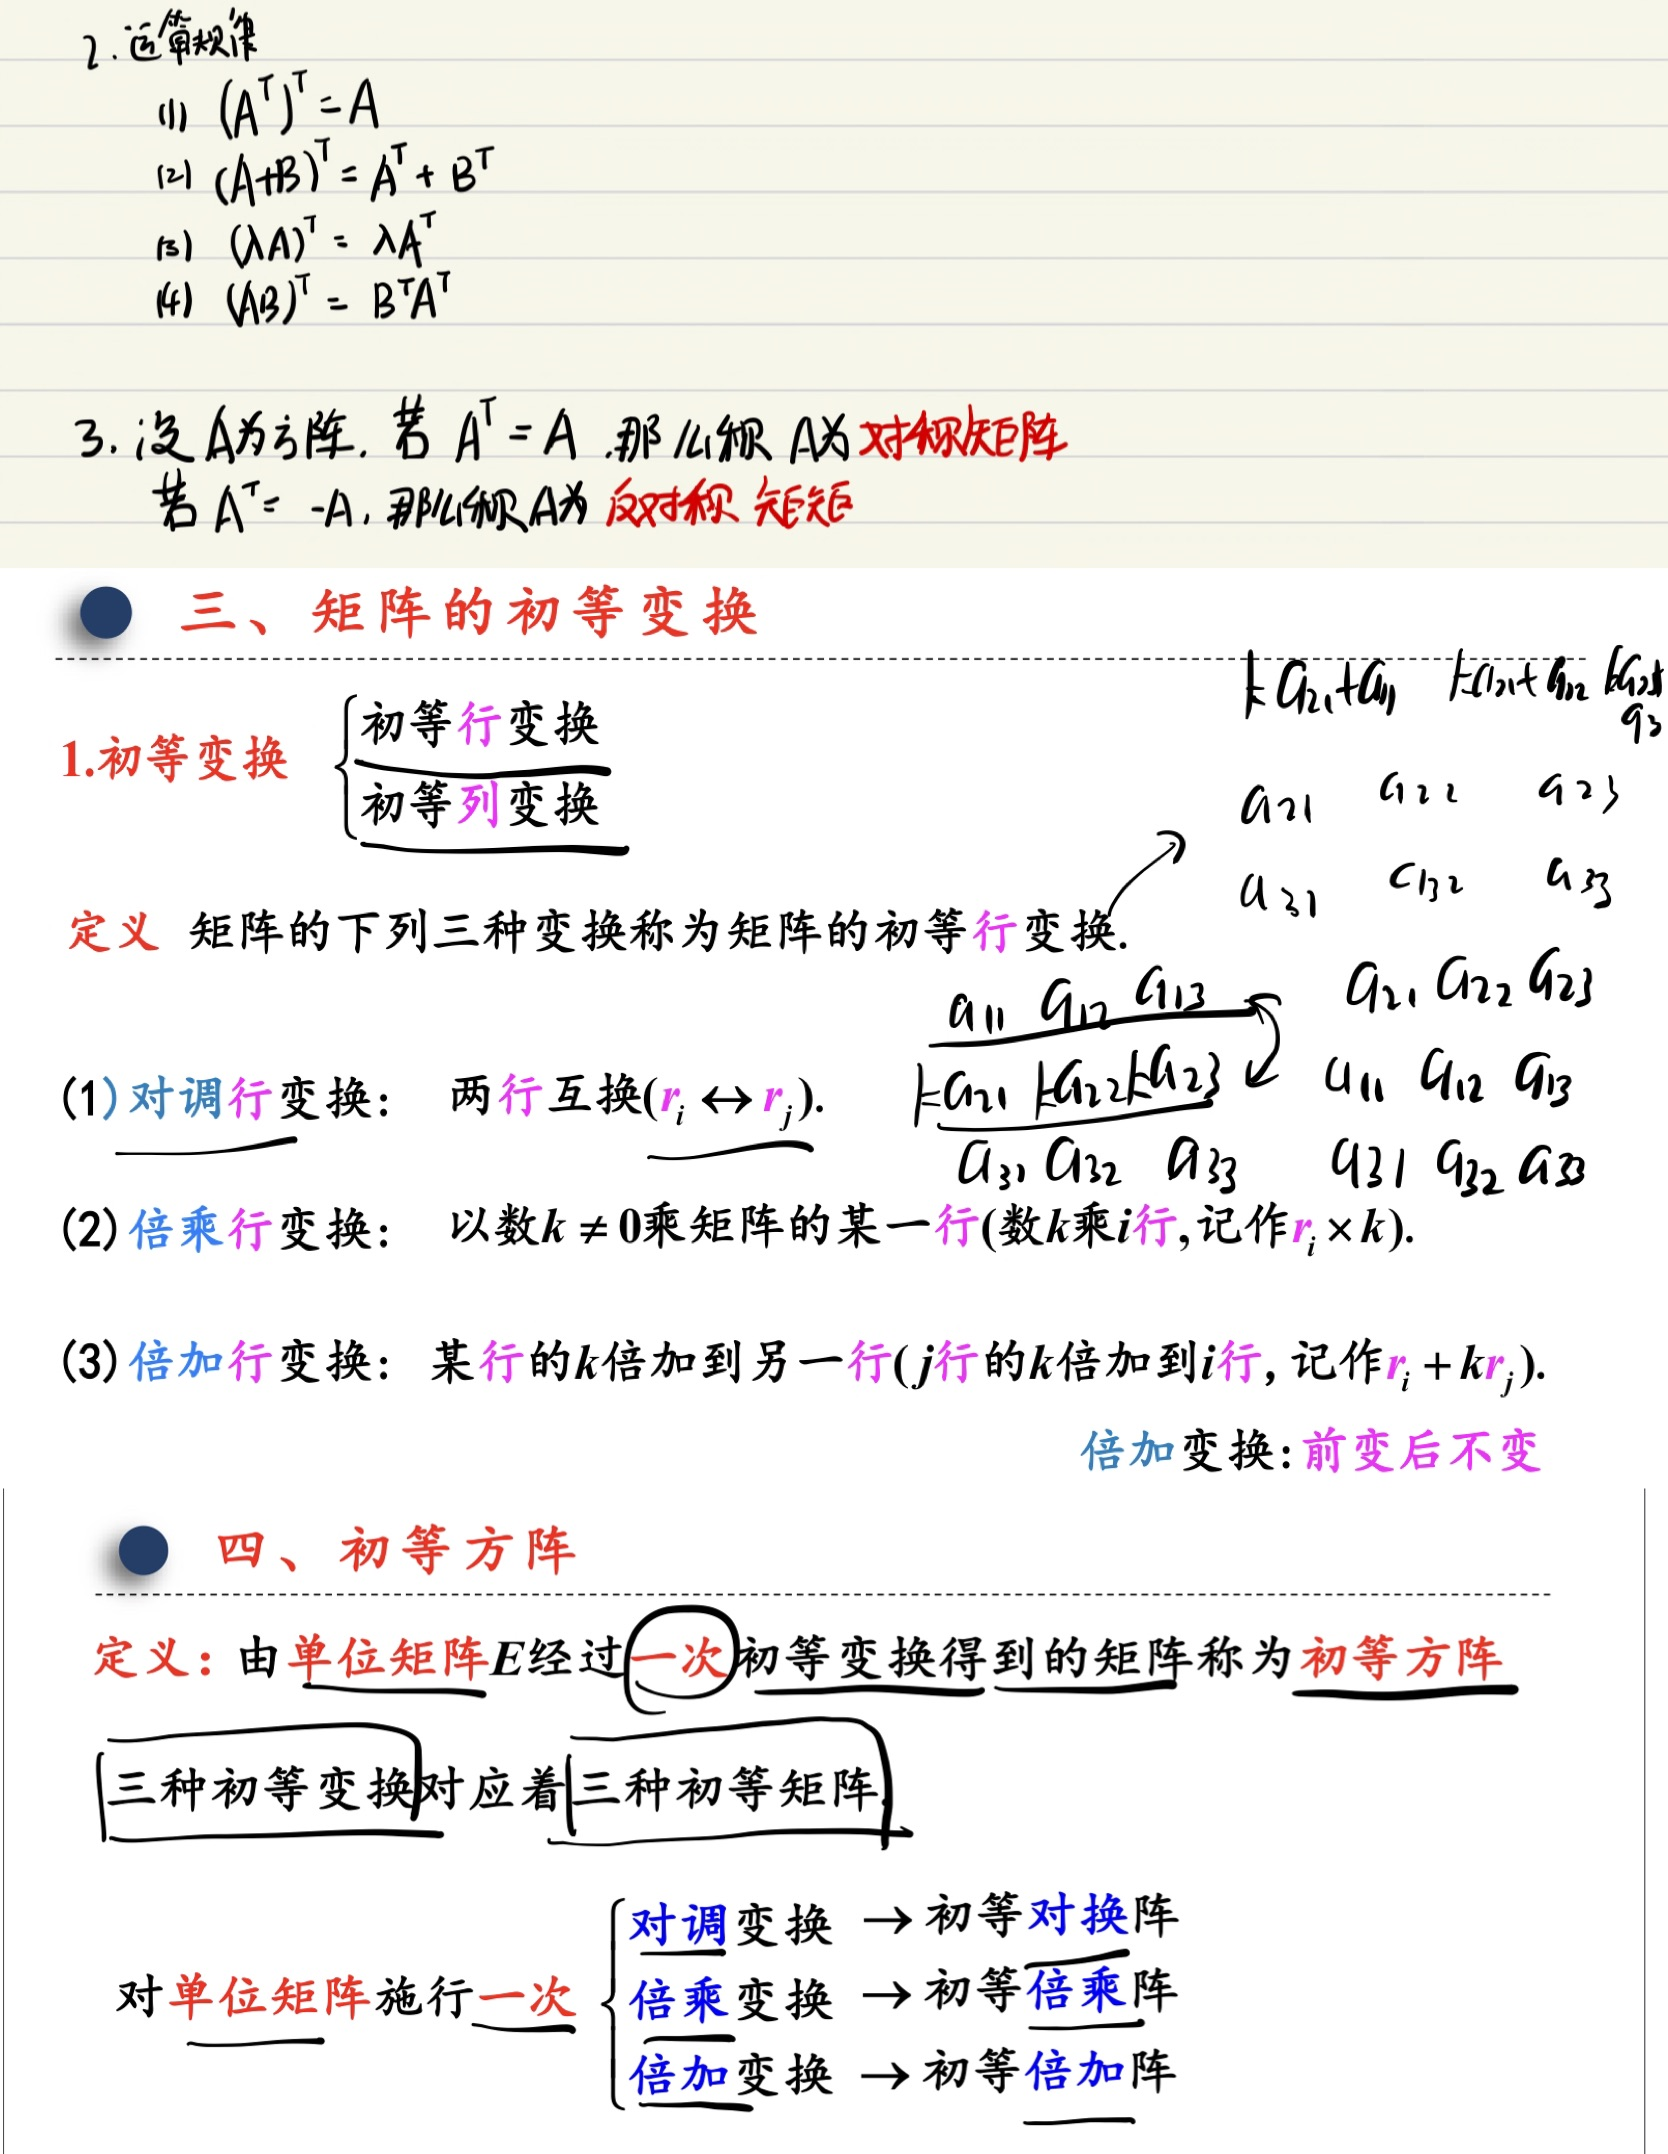 2. 运算规律
(1) (Aᵀ)ᵀ = A
(2) (A+B)ᵀ = Aᵀ + Bᵀ
(3) (λA)ᵀ = λAᵀ
(4) (AB)ᵀ = BᵀAᵀ
3. 设A为方阵. 若 Aᵀ = A .那么称 A为对称矩阵
若 Aᵀ = -A, 那么称A为 反对称 矩矩
三、矩阵的初等变换
ka₂₁+a₁₁ ka₂₁+a₁₂
1.初等变换
初等行变换
初等列变换
a₂₁ a₂₂ a₂₃
a₃₁ a₃₂ a₃₃
定义 矩阵的下列三种变换称为矩阵的初等行变换.
a₁₁ a₁₂ a₁₃ a₂₁ a₂₂ a₂₃
ka₂₁ ka₂₂ ka₂₃ a₁₁ a₁₂ a₁₃
a₃₁ a₃₂ a₃₃ a₃₁ a₃₂ a₃₃
(1)对调行变换： 两行互换(rᵢ ↔ rⱼ).
(2)倍乘行变换： 以数k ≠ 0乘矩阵的某一行(数k乘i行,记作rᵢ × k).
(3)倍加行变换： 某行的k倍加到另一行(j行的k倍加到i行, 记作rᵢ + krⱼ).
倍加变换：前变后不变
四、初等方阵
定义：由单位矩阵E经过一次初等变换得到的矩阵称为初等方阵
三种初等变换对应着三种初等矩阵.
对调变换 → 初等对换阵
对单位矩阵施行一次 倍乘变换 → 初等倍乘阵
倍加变换 → 初等倍加阵